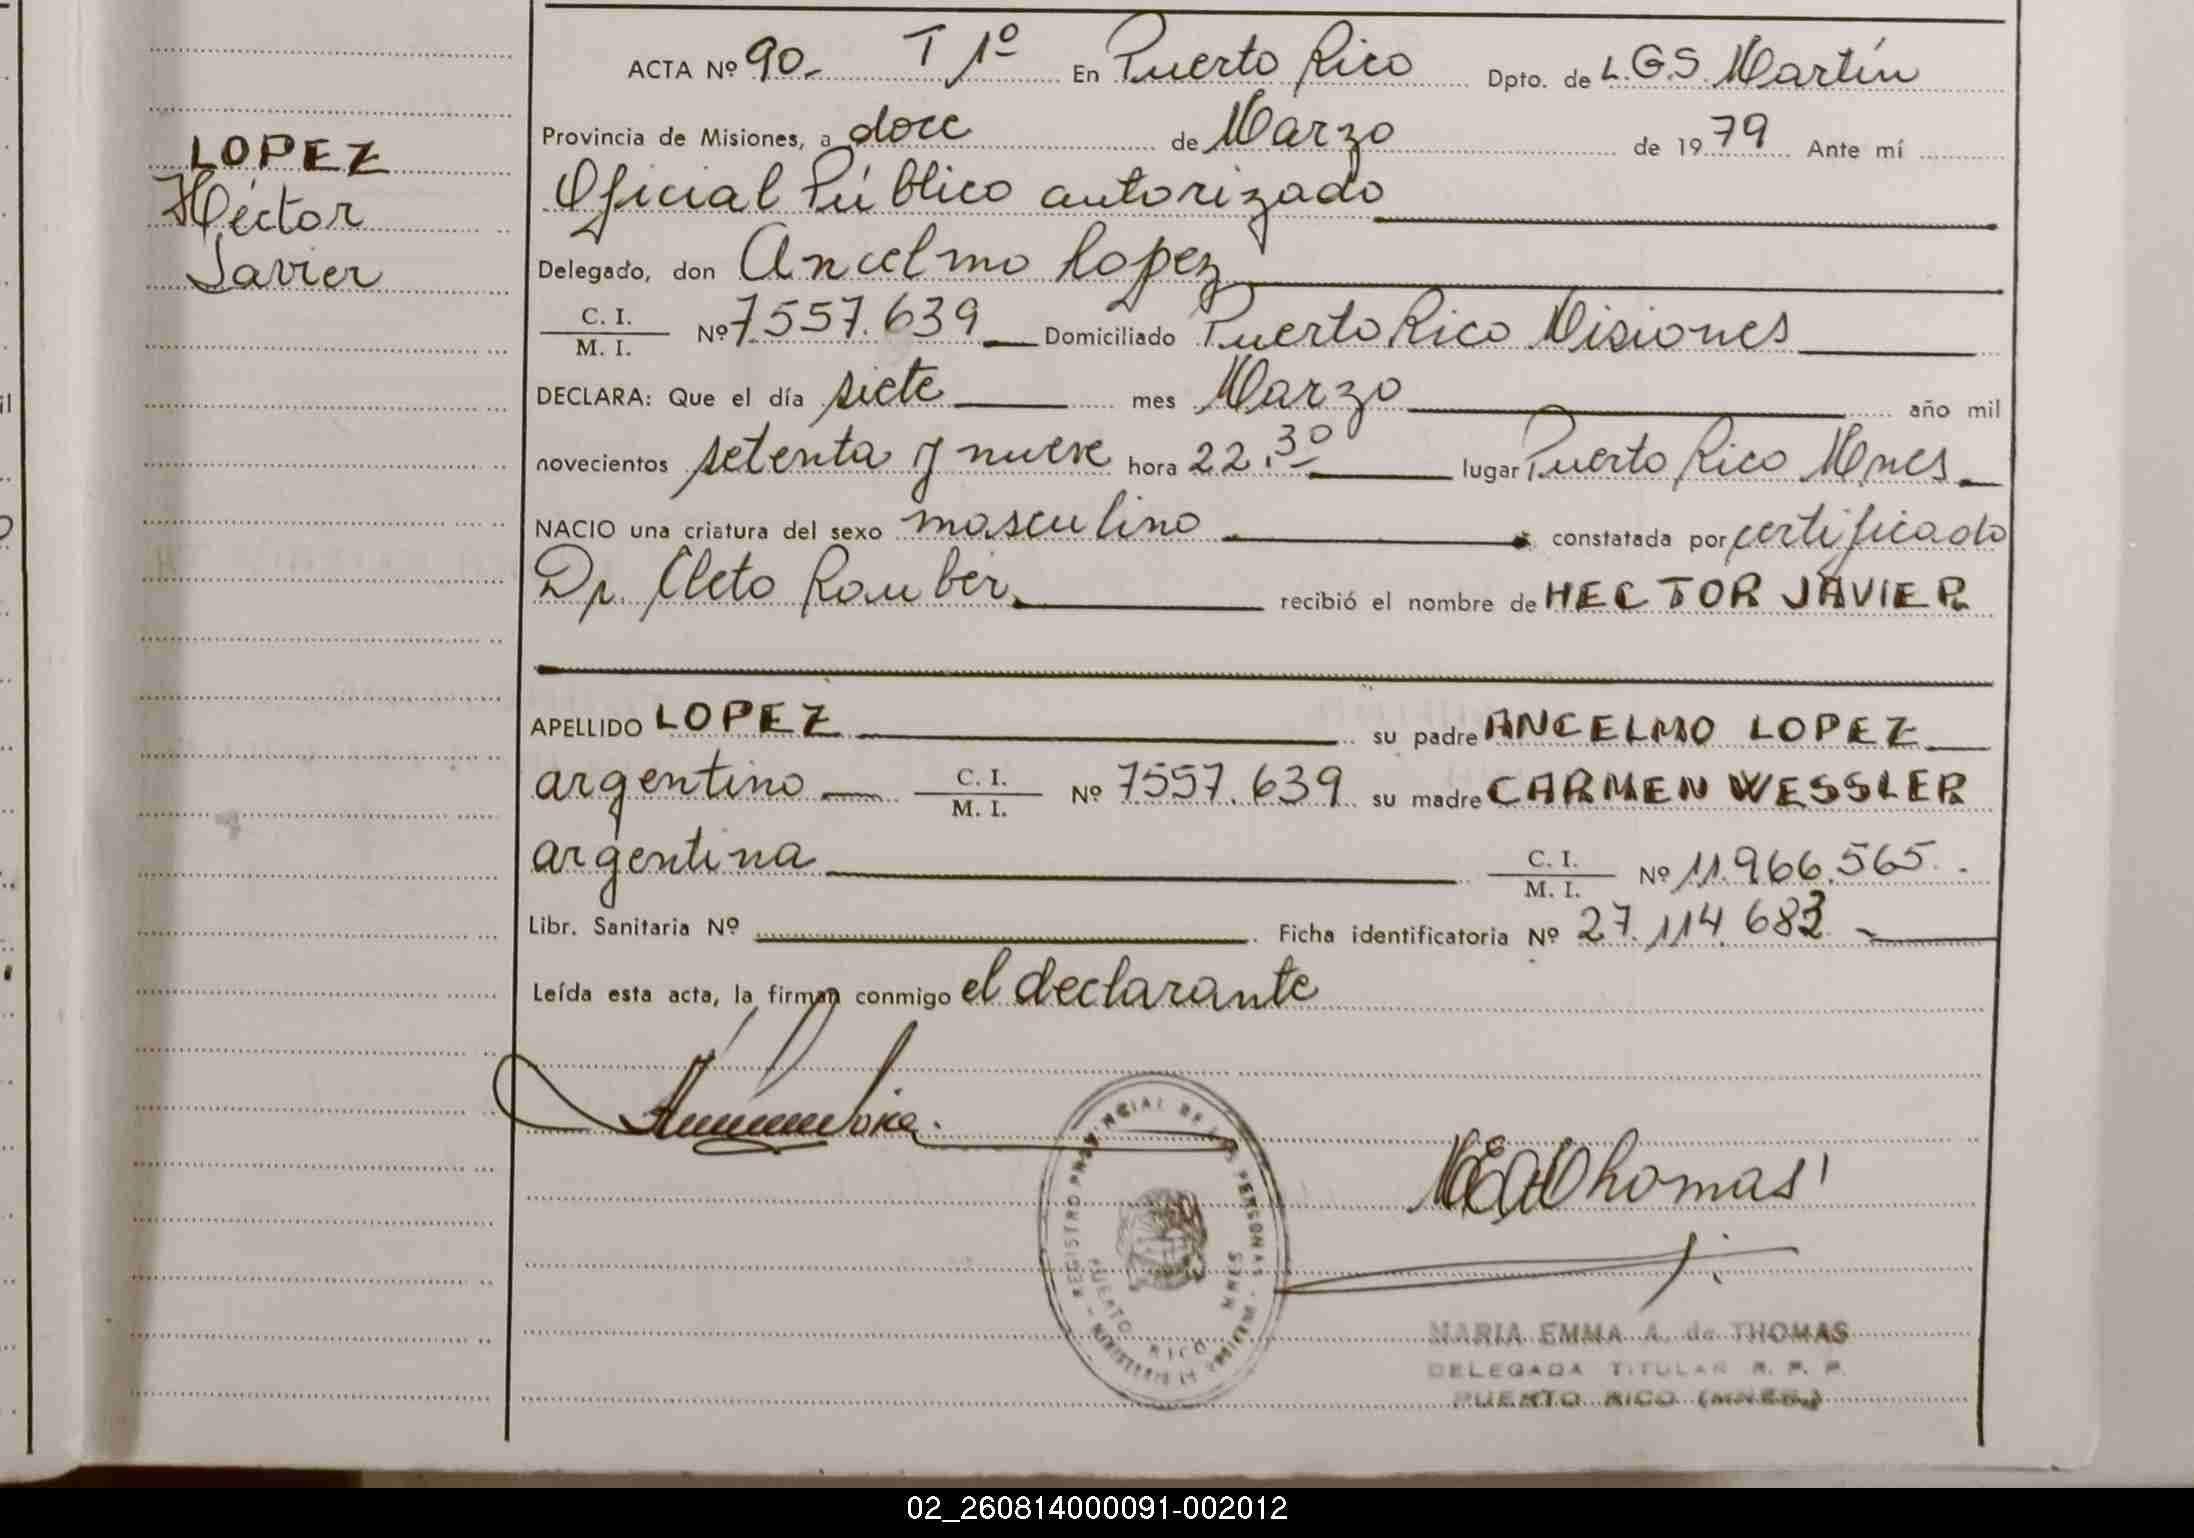 LOPEZ
Héctor
Javier
ACTA Nº 90. T 1º En Puerto Rico Dpto. de L.G.S. Martín
Provincia de Misiones, a doce de Marzo de 1979 Ante mí
Oficial Público autorizado
Delegado, don Ancelmo Lopez
C. I.
M. I. Nº 7557.639 Domiciliado Puerto Rico Misiones
DECLARA: Que el día siete mes Marzo año mil
novecientos setenta y nueve hora 22.30 lugar Puerto Rico Mnes
NACIO una criatura del sexo masculino constatada por certificado
Dr. Cleto Rauber recibió el nombre de HECTOR JAVIER
APELLIDO LOPEZ su padre ANCELMO LOPEZ
argentino C. I.
M. I. Nº 7557.639 su madre CARMEN WESSLER
argentina C. I.
M. I. Nº 11.966.565.
Libr. Sanitaria Nº Ficha identificatoria Nº 27.114.683
Leída esta acta, la firman conmigo el declarante
MEAdThomas
REGISTRO PROVINCIAL DE LAS PERSONAS
PUERTO RICO MNES
MARIA EMMA A. de THOMAS
DELEGADA TITULAR R. P. P.
PUERTO RICO (MNES.)
02_260814000091-002012